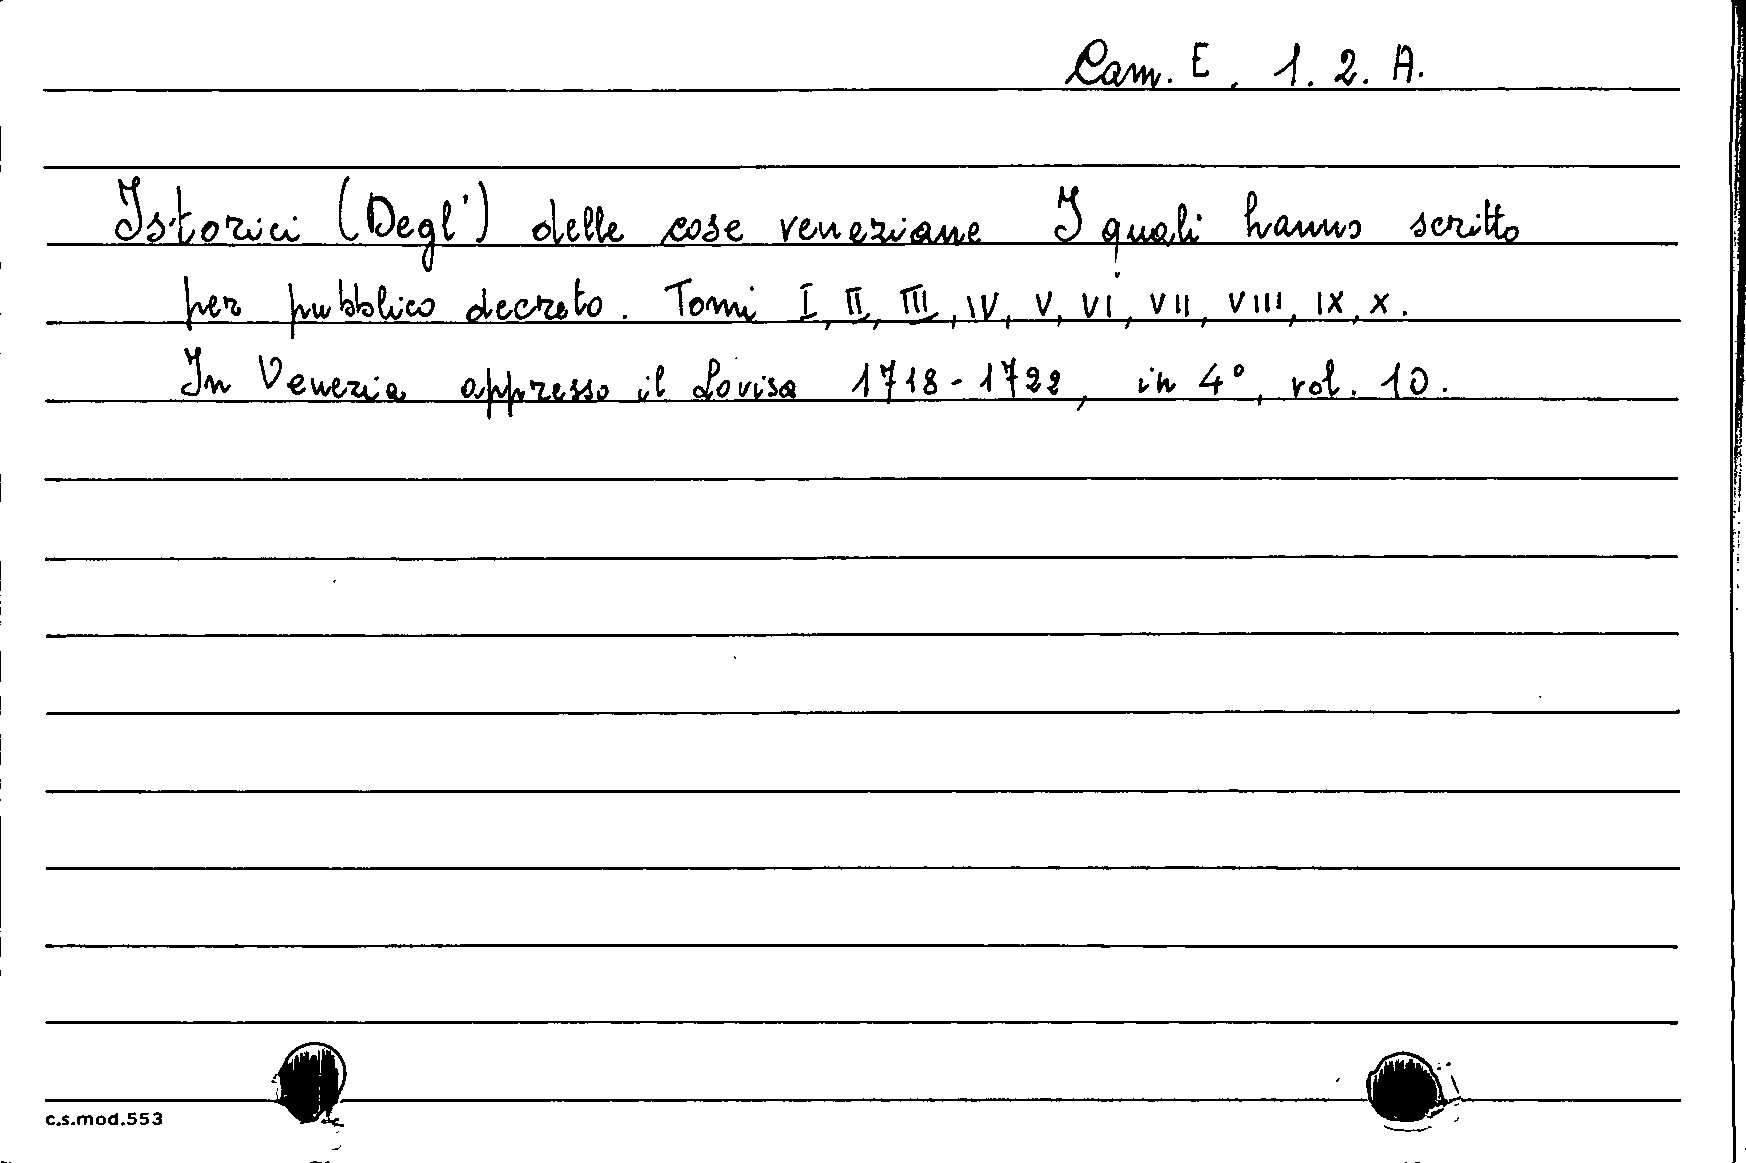 Cam. E. 1. 2. A.
Istorici (Degl') delle cose veneziane I quali hanno scritto
per pubblico decreto. Tomi I, II, III, IV, V, VI, VII, VIII, IX, X.
In Venezia appresso il Lovisa 1718-1722, in 4°, vol. 10.
c.s.mod.553